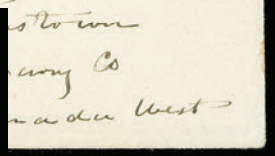 stown
Co
nada West